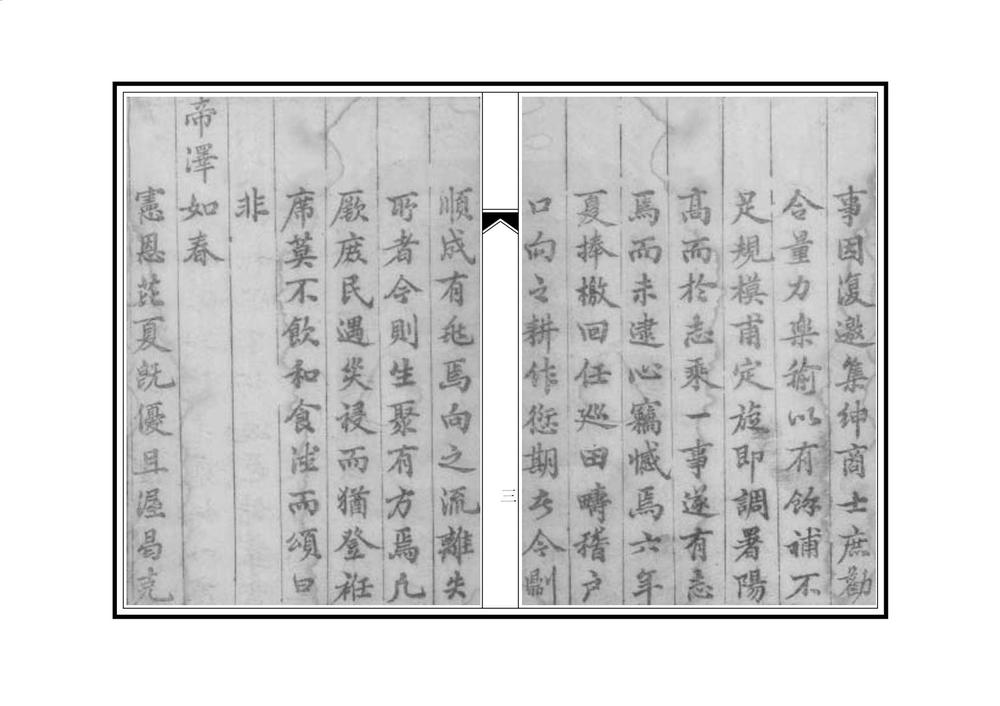 事因復邀集紳商士庶勸
合量力樂輸以有餘補不
足規模甫定旋即調署陽
高而於志乘一事遂有志
焉而未逮心竊憾焉六年
夏捧檄回任巡田疇稽户
口向之耕作愆期者今則
三
順成有兆焉向之流離失
所者今則生聚有方焉凡
厥庶民遇災祲而猶登袵
席莫不飲和食德而頌曰
非
帝澤如春
憲恩芘夏旣優且渥曷克